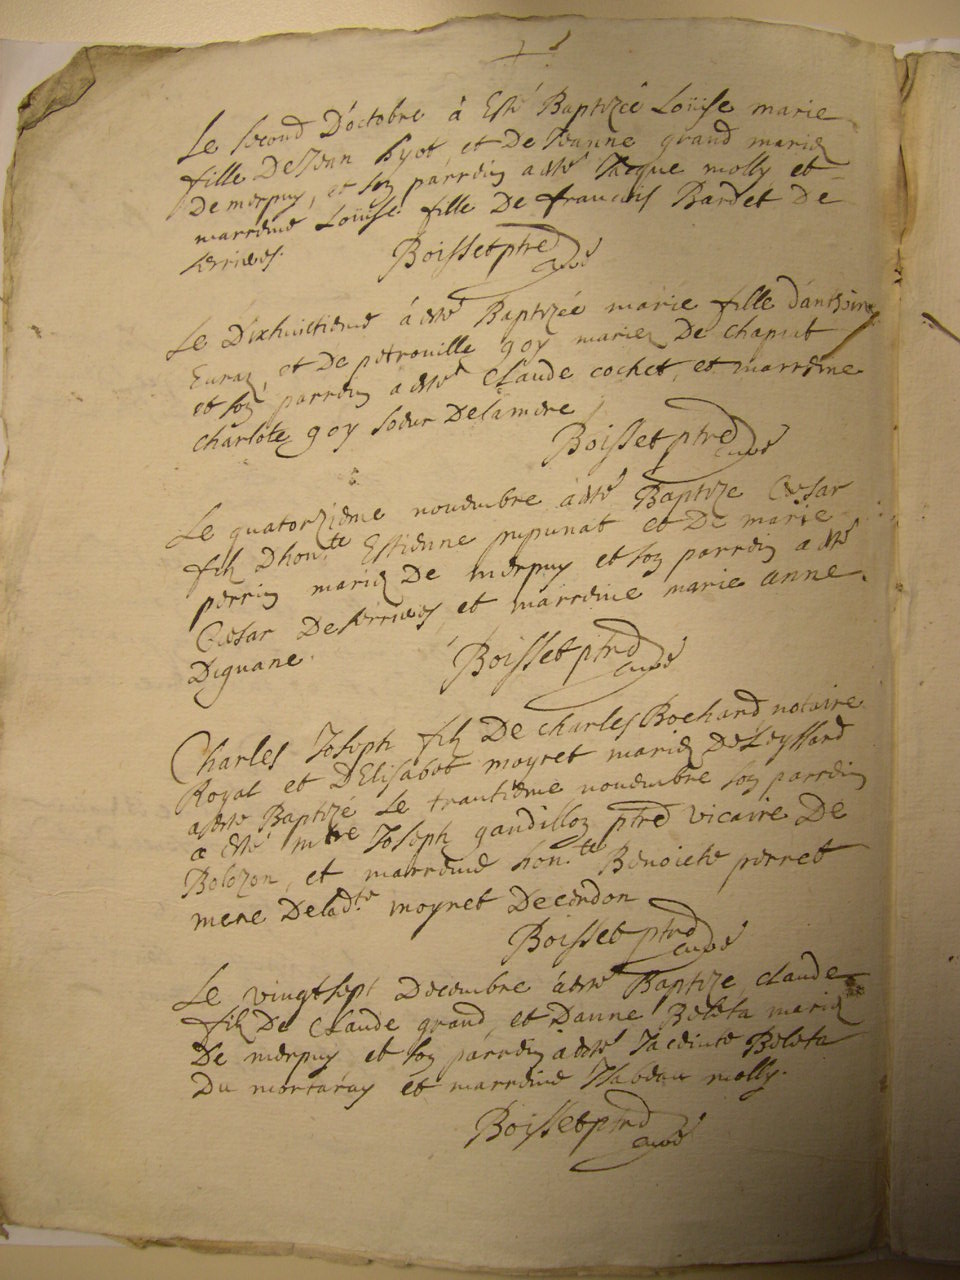 Le second D'octobre à Esté Baptizée Loüise marie
fille De Jean hyot et De Jeanne grand mariez
De merpuy, et son parrein a esté Jacque molly et
marreine Loüise fille De francois Bardet De
serrieres.
Boisset ptre
curé
Le Dixhuictieme à esté Baptizée marie fille d'anthoine
Euraz, et De petrouille goy mariez De Chaput
et son parrein a esté Claude cochet, et marreine
charlote goy soeur De la mere
Boisset ptre
curé
Le quatorzieme novembre à esté Baptize Cesar
filz D'hon.te Estienne pupunat et De marie
perrin mariez De merpuy et son parrein a esté
Cesar De serrieres, et marreine marie anne
Diguane.
Boisset ptre
curé
Charles Joseph filz De Charles Bochard notaire
Royal et D'Elisabet moyret mariez De Leyssard
a esté Baptizé Le trantieme novembre son parrein
a Esté m.tre Joseph gandilloz ptre vicaire De
Bolozon, et marreine hon.te Benoiete perret
mere De lad.te moyret De cerdon
Boisset ptre
curé
Le vingtsept Decembre à esté Baptize, claude
filz De Claude grand, et D'anne Beleta mariez
De merpuy et son parrein à esté Jacinte Beleta
Du mortaray et marreine Isabeau molly.
Boisset ptre
curé